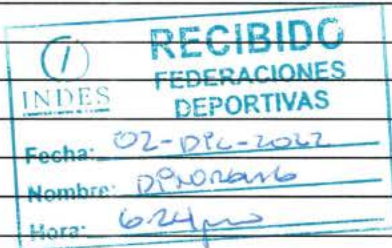 RECIBIDO
1
INDES
FEDERACIONES
DEPORTIVAS
Fecha: 02-DIC-2022
Nombre:
Hora: 6:24pm